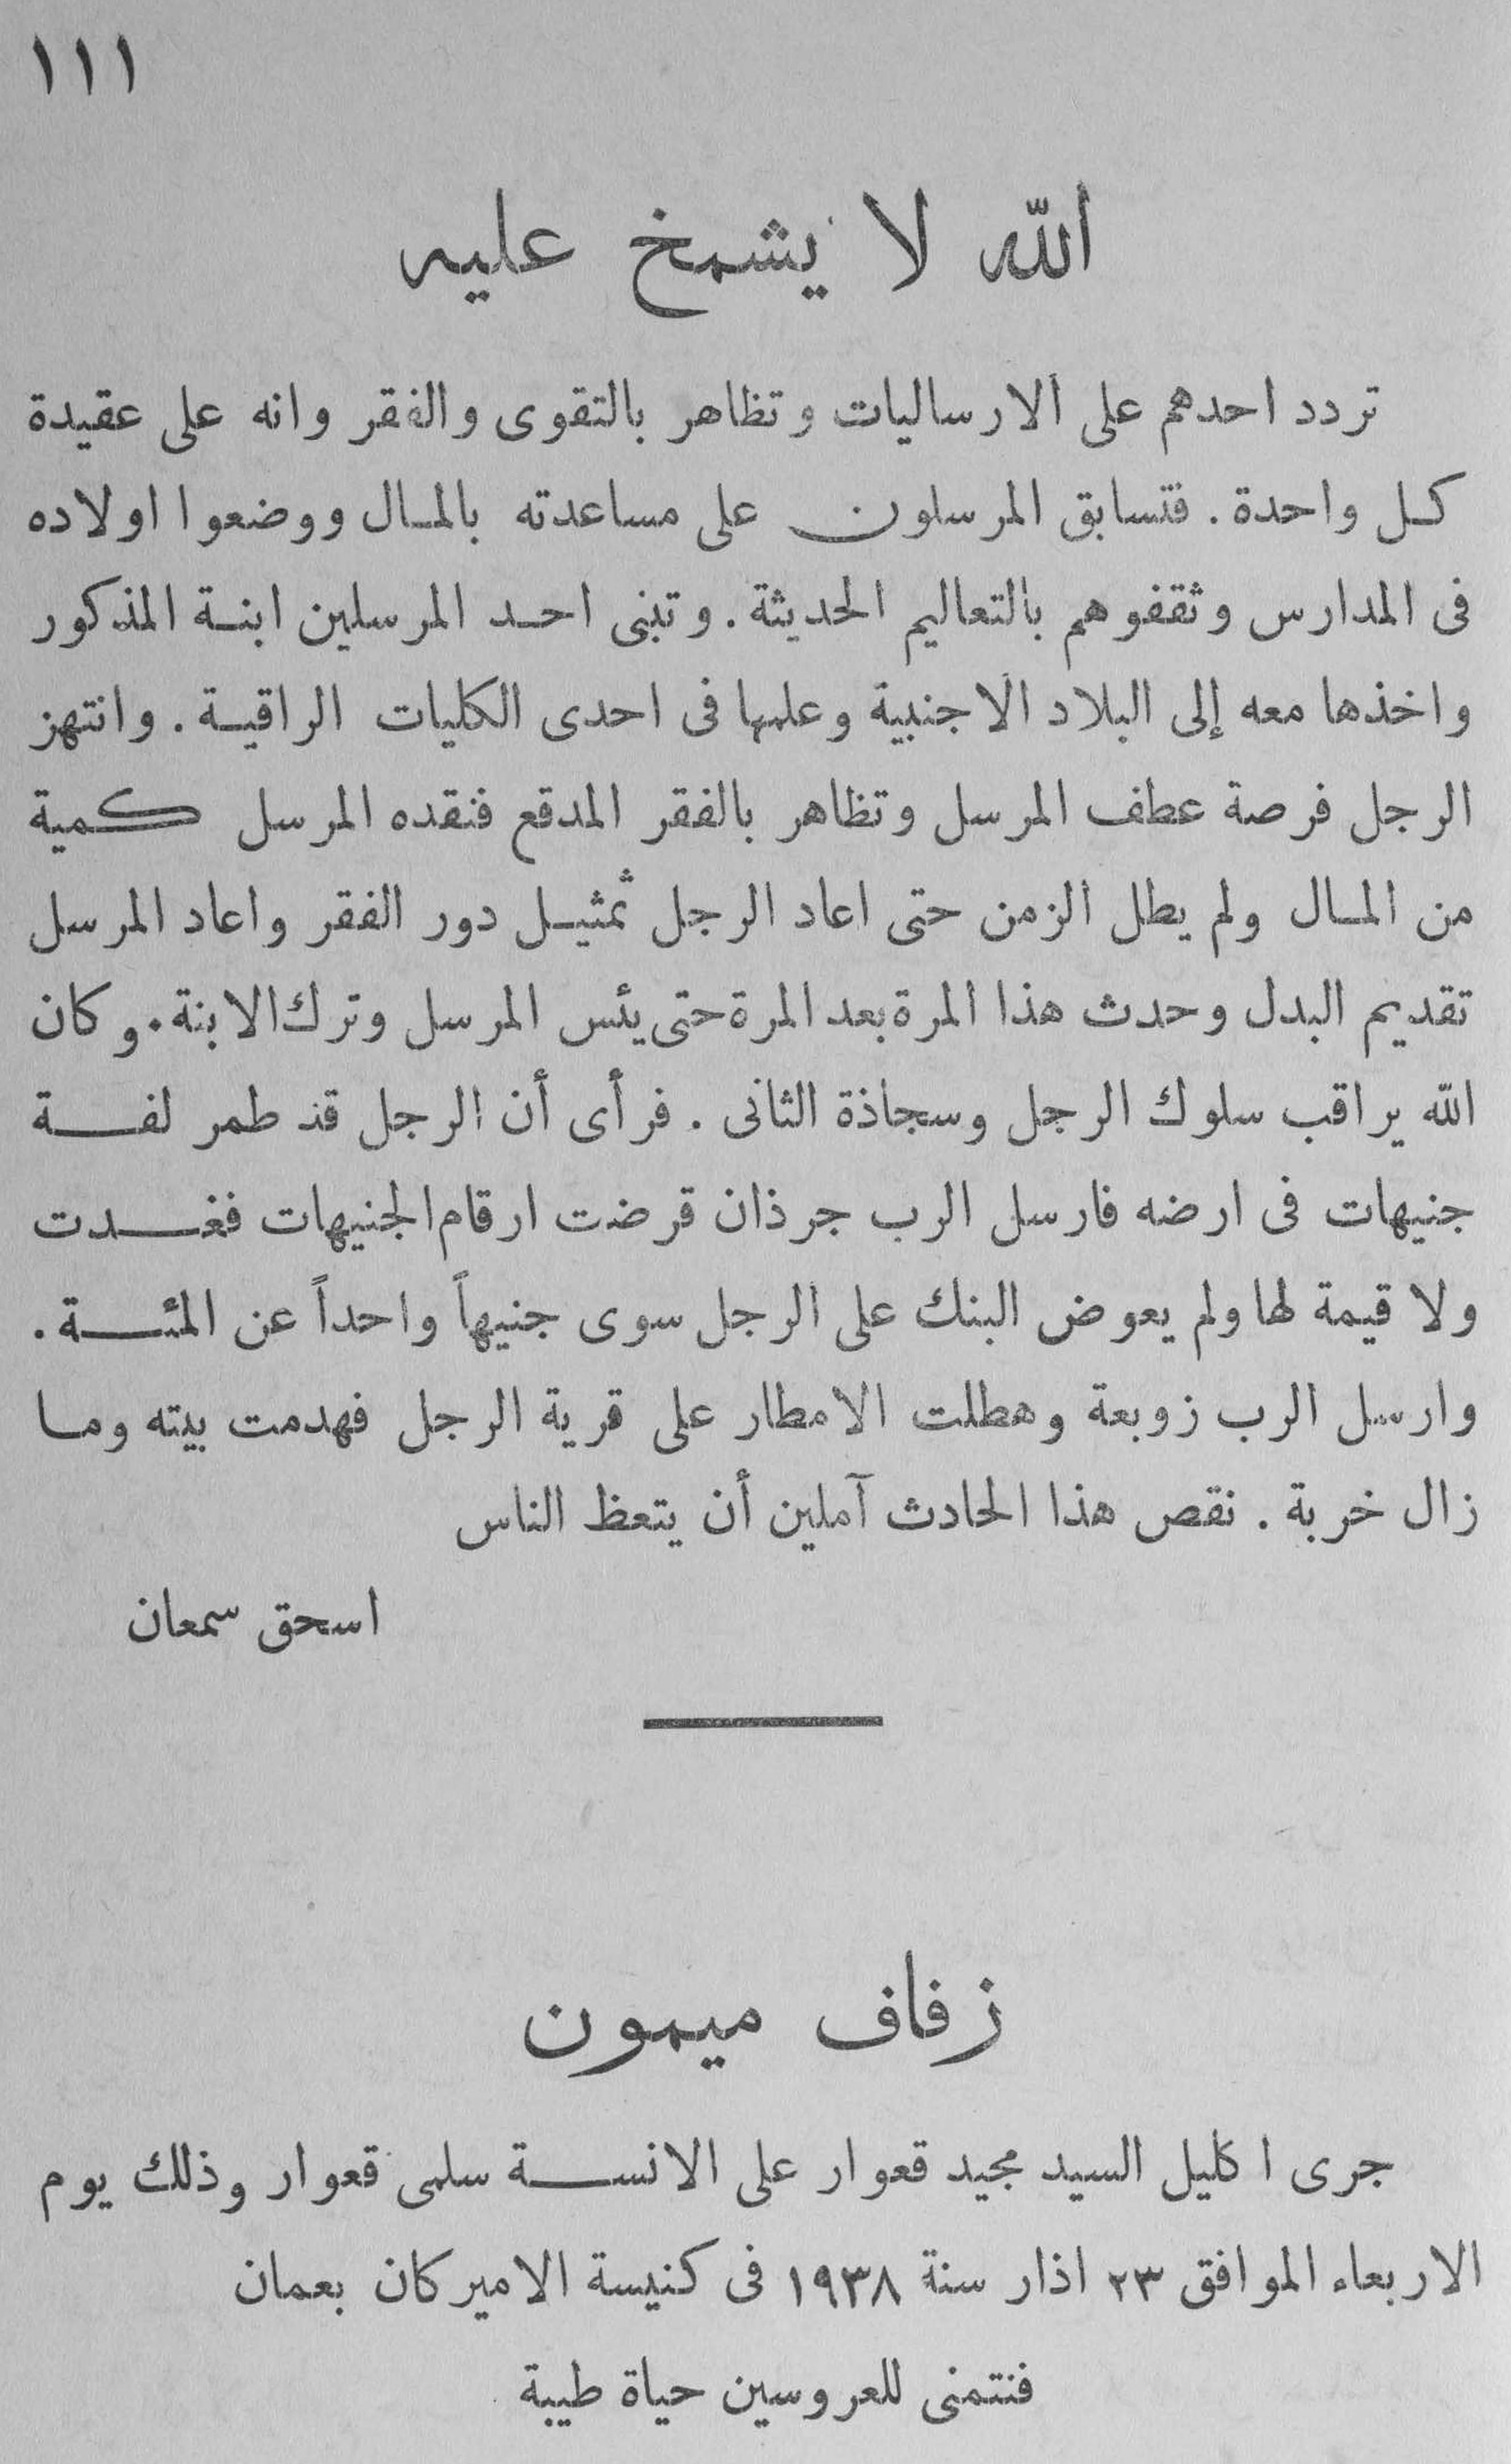 ١١١
الله لا يشمخ عليه
تردد احدهم على الارساليات وتظاهر بالتقوى والفقر وانه على عقيدة
كل واحدة . فتسابق المرسلون على مساعدته بالمال ووضعوا اولاده
فى المدارس وثقفوهم بالتعاليم الحديثة . وتبنى احد المرسلين ابنة المذكور
واخذها معه إلى البلاد الاجنبية وعلمها فى احدى الكليات الراقية . وانتهز
الرجل فرصة عطف المرسل وتظاهر بالفقر المدقع فنقده المرسل كمية
من المال ولم يطل الزمن حتى اعاد الرجل تمثيل دور الفقر واعاد المرسل
تقديم البدل وحدث هذا المرة بعد المرة حتى يئس المرسل وترك الابنة . وكان
الله يراقب سلوك الرجل وسجاذة الثانى . فرأى أن الرجل قد طمر لفة
جنيهات فى ارضه فارسل الرب جرذان قرضت ارقام الجنيهات فغدت
ولا قيمة لها ولم يعوض البنك على الرجل سوى جنيهاً واحداً عن المئة .
وارسل الرب زوبعة وهطلت الامطار على قرية الرجل فهدمت بيته وما
زال خربة . نقص هذا الحادث آملين أن يتعظ الناس
اسحق سمعان
زفاف ميمون
جرى اكليل السيد مجيد قعوار على الانسة سلمى قعوار وذلك يوم
الاربعاء الموافق ٢٣ اذار سنة ١٩٣٨ فى كنيسة الاميركان بعمان
فنتمنى للعروسين حياة طيبة